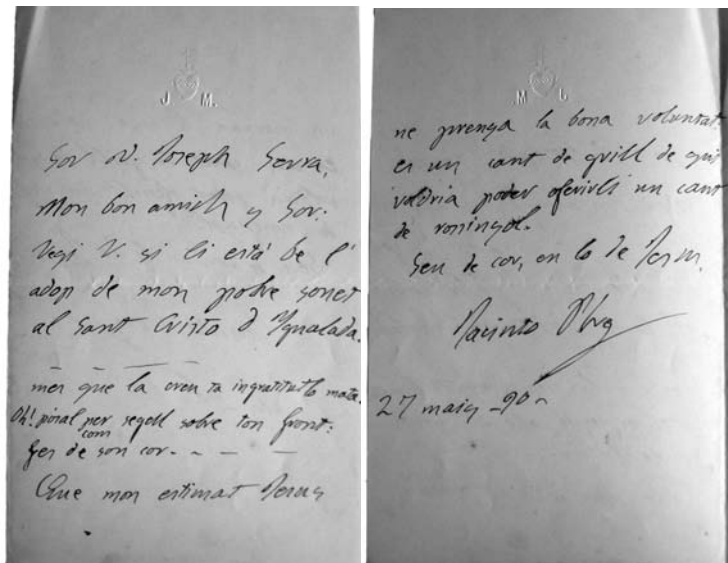 J M.
Sor D. Joseph Serra,
Mon bon amich y Sor:
Vegi V. si li está be l'
adop de mon pobre sonet
al Sant Cristo d'Igualada.
mes que la creu ta ingratitut lo mata.
Oh! posal per segell sobre ton front:
com
fes de son cor
Que mon estimat Jesus
M L
ne prenga la bona voluntat
es un cant de grill de qui
voldria poder oferirli un cant
de rossinyol.
Seu de cor, en lo de Jesus,
Jacinto Pbre
27 maig -90-